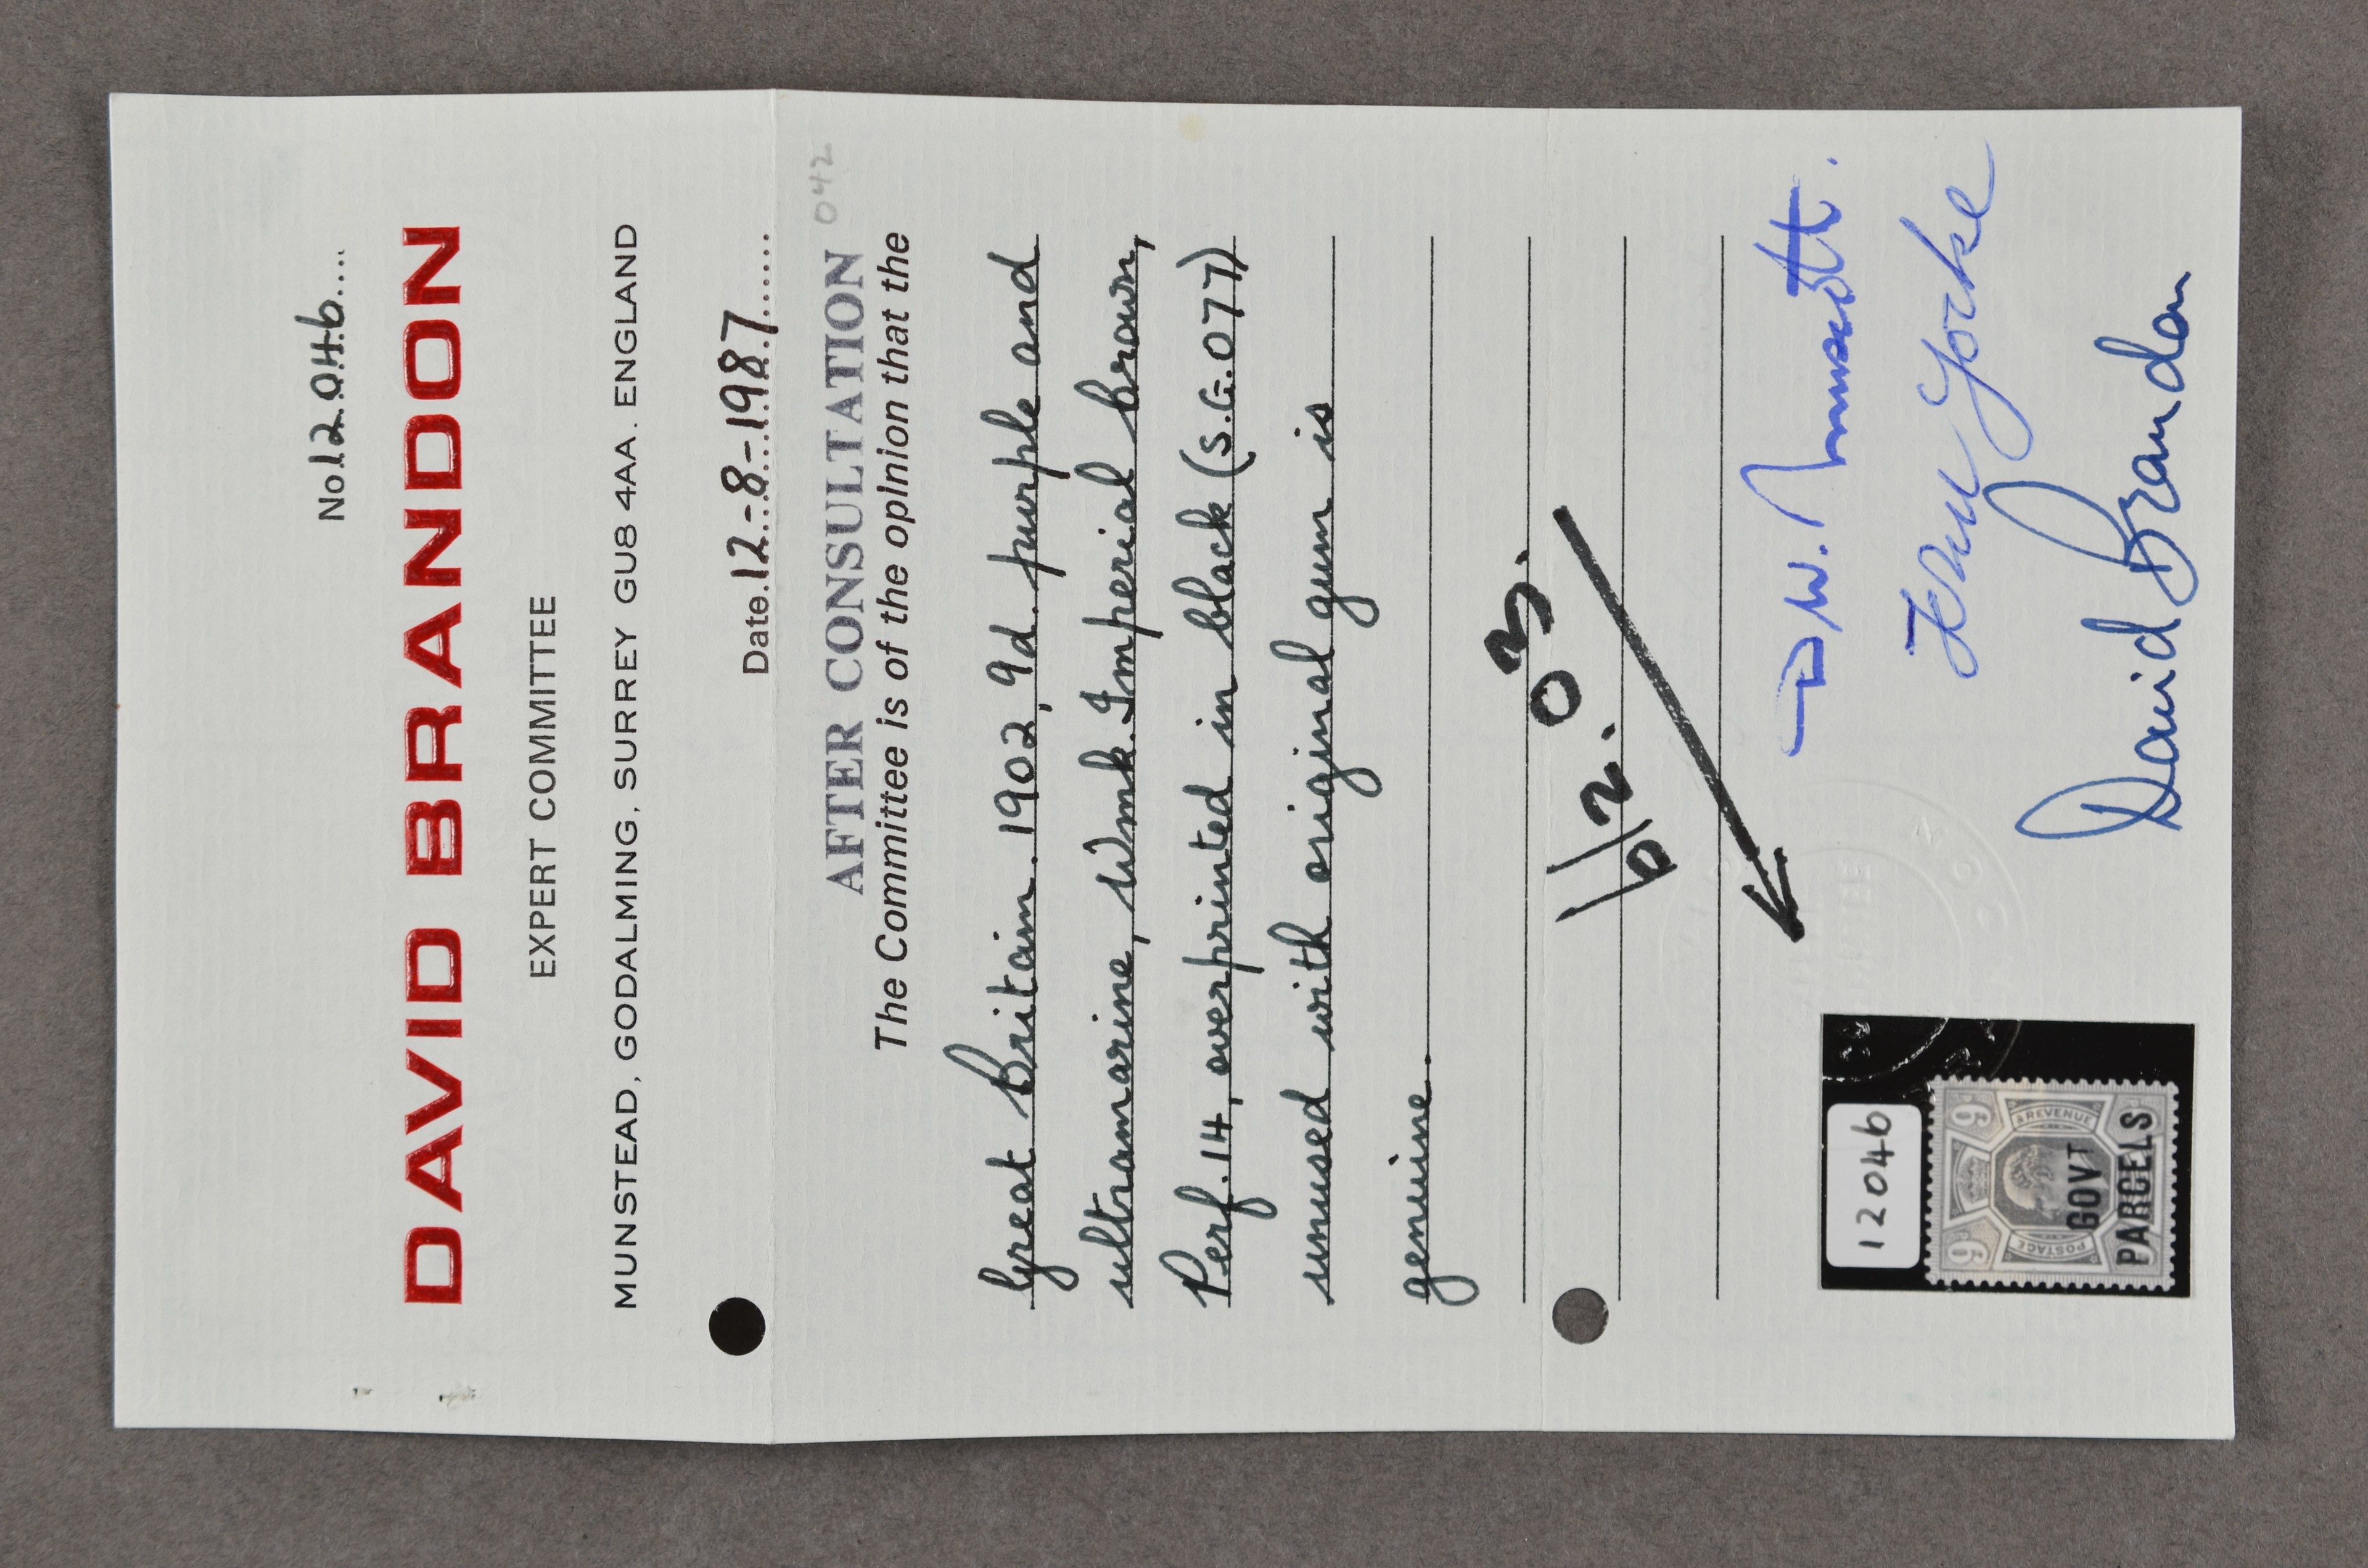 No.12046....
DAVID BRANDON
EXPERT COMMITTEE
MUNSTEAD, GODALMING, SURREY GU8 4AA. ENGLAND
Date.12.-8-.1987......
042
AFTER CONSULTATION
The Committee is of the opinion that the
Great Britain. 1902, 9d. purple and
ultramarine, Wmk. Imperial Crown,
Perf. 14, overprinted in black (S.G. 077)
unused with original gum is
genuine.
David Brandon
12046
9 9
POSTAGE & REVENUE
GOVT
PARCELS